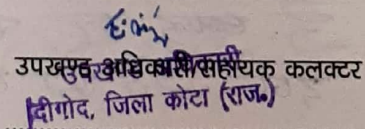 उपखण्ड अधिकारी/सहायक कलक्टर
दीगोद, जिला कोटा (राज०)